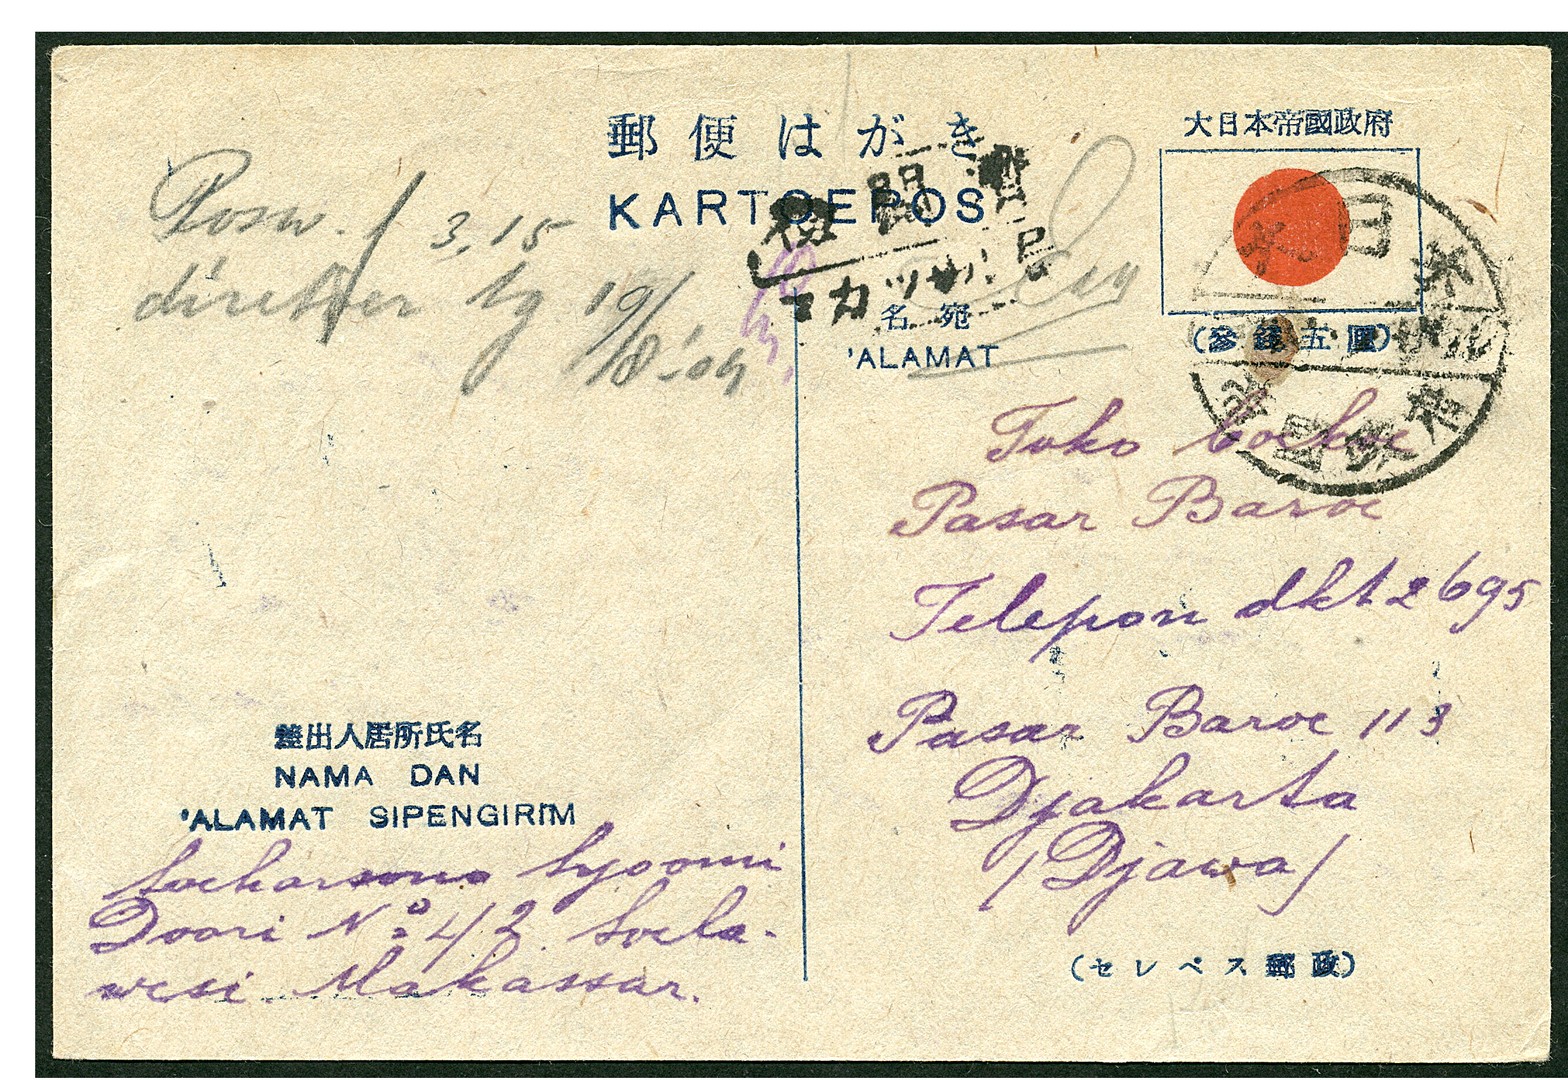 郵便はがき
KARTOEPOS
大日本帝國政府
(參錢五厘)
検閲濟
マカッサル局
名宛
'ALAMAT
Posw. / 3,15
direkter tg 19/
Toko boekoe
Pasar Baroe
Telepon dkt 2695
Pasar Baroe 113
Djakarta
/Djawa/
差出人居所氏名
NAMA DAN
'ALAMAT SIPENGIRIM
Soeharsono Syoomi
Doori No 42. Soela-
wesi Makassar.
(セレベス郵政)